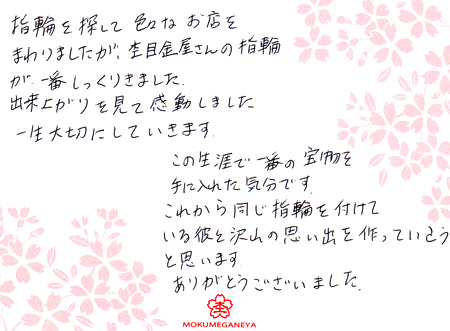 指輪を探して色々なお店を
まわりましたが、杢目金屋さんの指輪
が一番しっくりきました.
出来上がりを見て感動しました
一生大切にしていきます.
この生涯で一番の宝物を
手に入れた気分です.
これから同じ指輪を付けて
いる彼と沢山の思い出を作っていこう
と思います.
ありがとうございました.
杢
MOKUMEGANEYA